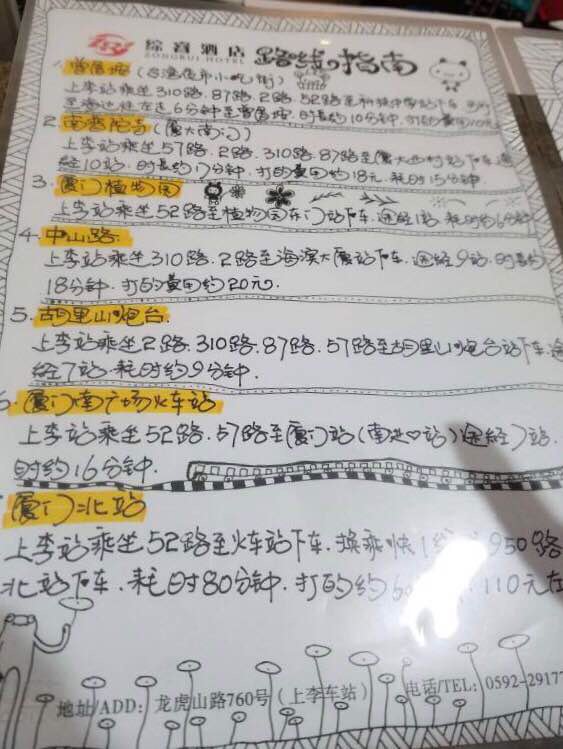 综音酒店 路线指南
ZONGRUI HOTEL
1. 曾厝垵 (台湾夜市小吃街)
上李站乘坐310路.87路.2路.52路至
往左走6分钟至曾厝垵.时长约10分钟.打的费用10元
2. 南普陀寺 (厦大南门)
上李站乘坐57路.2路.310路.87路至厦大西村站下车.途
经10站.时长约17分钟.打的费用约18元.耗时15分钟.
3. 厦门植物园
上李站乘坐52路至植物园东门站下车.途经1站.耗时约6分钟
4. 中山路.
上李站乘坐310路.2路至海滨大厦站下车.途经9站.时长约
18分钟.打的费用约20元.
5. 胡里山炮台.
上李站乘坐2路.310路.87路.57路至胡里山炮台站下车.途
经7站.耗时约9分钟.
厦门南广场火车站
上李站乘坐52路.57路至厦门站(南进口站)途经7站.
时约16分钟.
厦门北站
上李站乘坐52路至火车站下车.换乘快1线 950路
北站下车.耗时80分钟.打的约60 110元在
地址/ADD：龙虎山路760号（上李车站） 电话/TEL：0592-29177